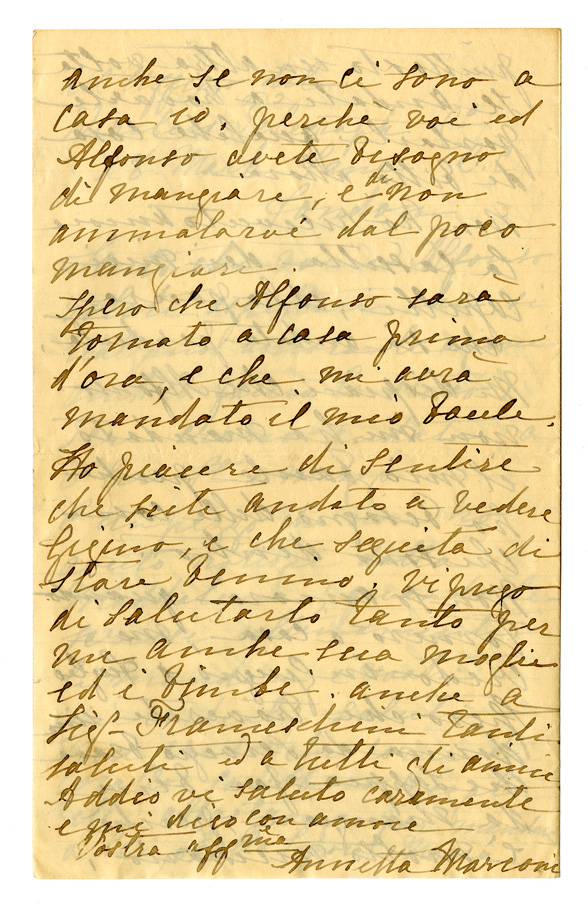 anche se non ci sono a
casa io, perchè voi ed
Alfonso avete bisogno
di mangiare, e di non
ammalarvi dal poco
mangiare.
Spero che Alfonso sarà
tornato a casa prima
d'ora, e che mi avrà
mandato il mio baule.
Ho piacere di sentire
che siete andato a vedere
Gigino, e che seguita di
stare benino. vi prego
di salutarlo tanto per
me anche sua moglie
ed i bimbi. anche a
Sigr Franceschini tanti
saluti ed a tutti di amici
Addio vi saluto caramente
e mi dico con amore
Vostra affma
Annetta Marconi